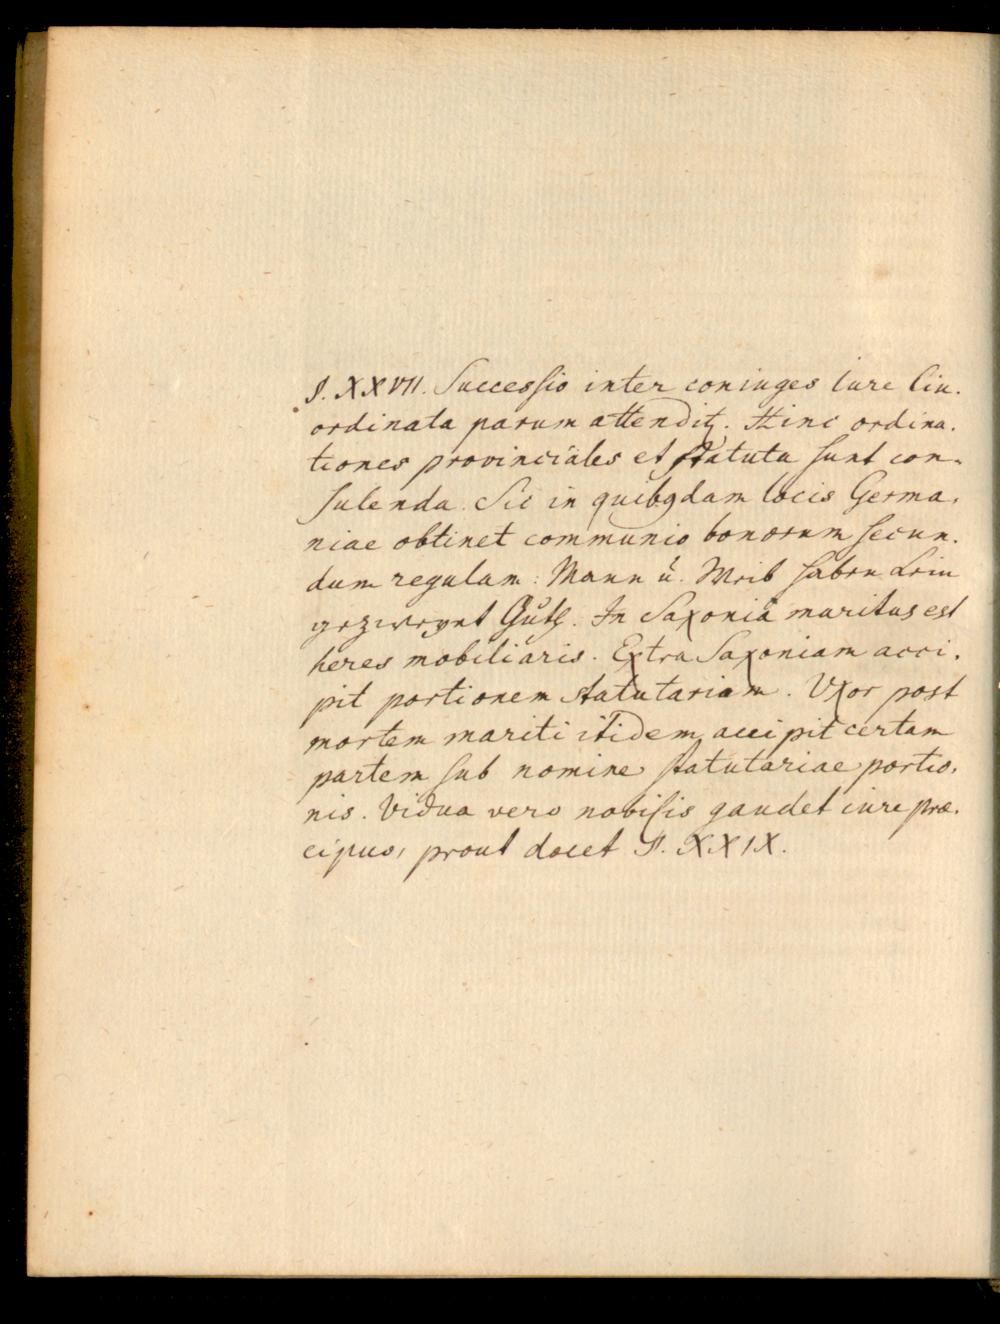 §. XXVII. Successio inter coniuges iure Civ.
ordinata parum attenditꝫ. Hinc ordina-
tiones provinciales et statuta sunt con-
sulenda. Sic in quibꝯdam locis Germa-
niae obtinet communio bonorum secun-
dum regulam: Mann ŭ. Weib haben kein
gezweyet Guth. In Saxonia maritus est
heres mobiliaris. Extra Saxoniam acci-
pit portionem statutariam. Uxor post
mortem mariti itidem accipit certam
partem sub nomine statutariae portio-
nis. Vidua vero nobilis gaudet iure præ-
cipuo, prout docet §. XXIX.